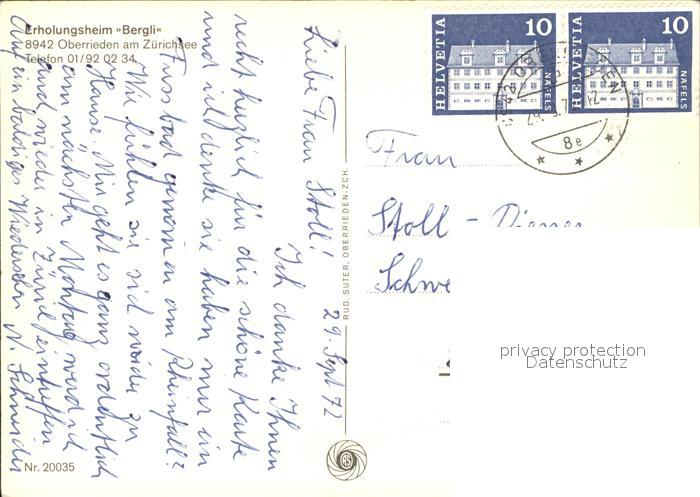 Erholungsheim »Bergli«
8942 Oberrieden am Zürichsee
Telefon 01/92 02 34
29. Sept 72
Liebe Frau Stoll!
Ich danke Ihnen
recht herzlich für die schöne Karte
und ich denke sie haben nur ein
Fussbad genommen am Rheinfall?
Wie fühlen sie sich wieder zu
Hause. Mir geht es ganz ordentlich
am nächsten Montag werde ich
und wieder in Zürich eintreffen
Auf ein baldiges Wiedersehen N. Schneider
Nr. 20035
RUD. SUTER, OBERRIEDEN-ZCH.
HELVETIA 10
NÄFELS
HELVETIA 10
NÄFELS
8e
Frau
Stoll - Diener
Schwe
privacy protection
Datenschutz